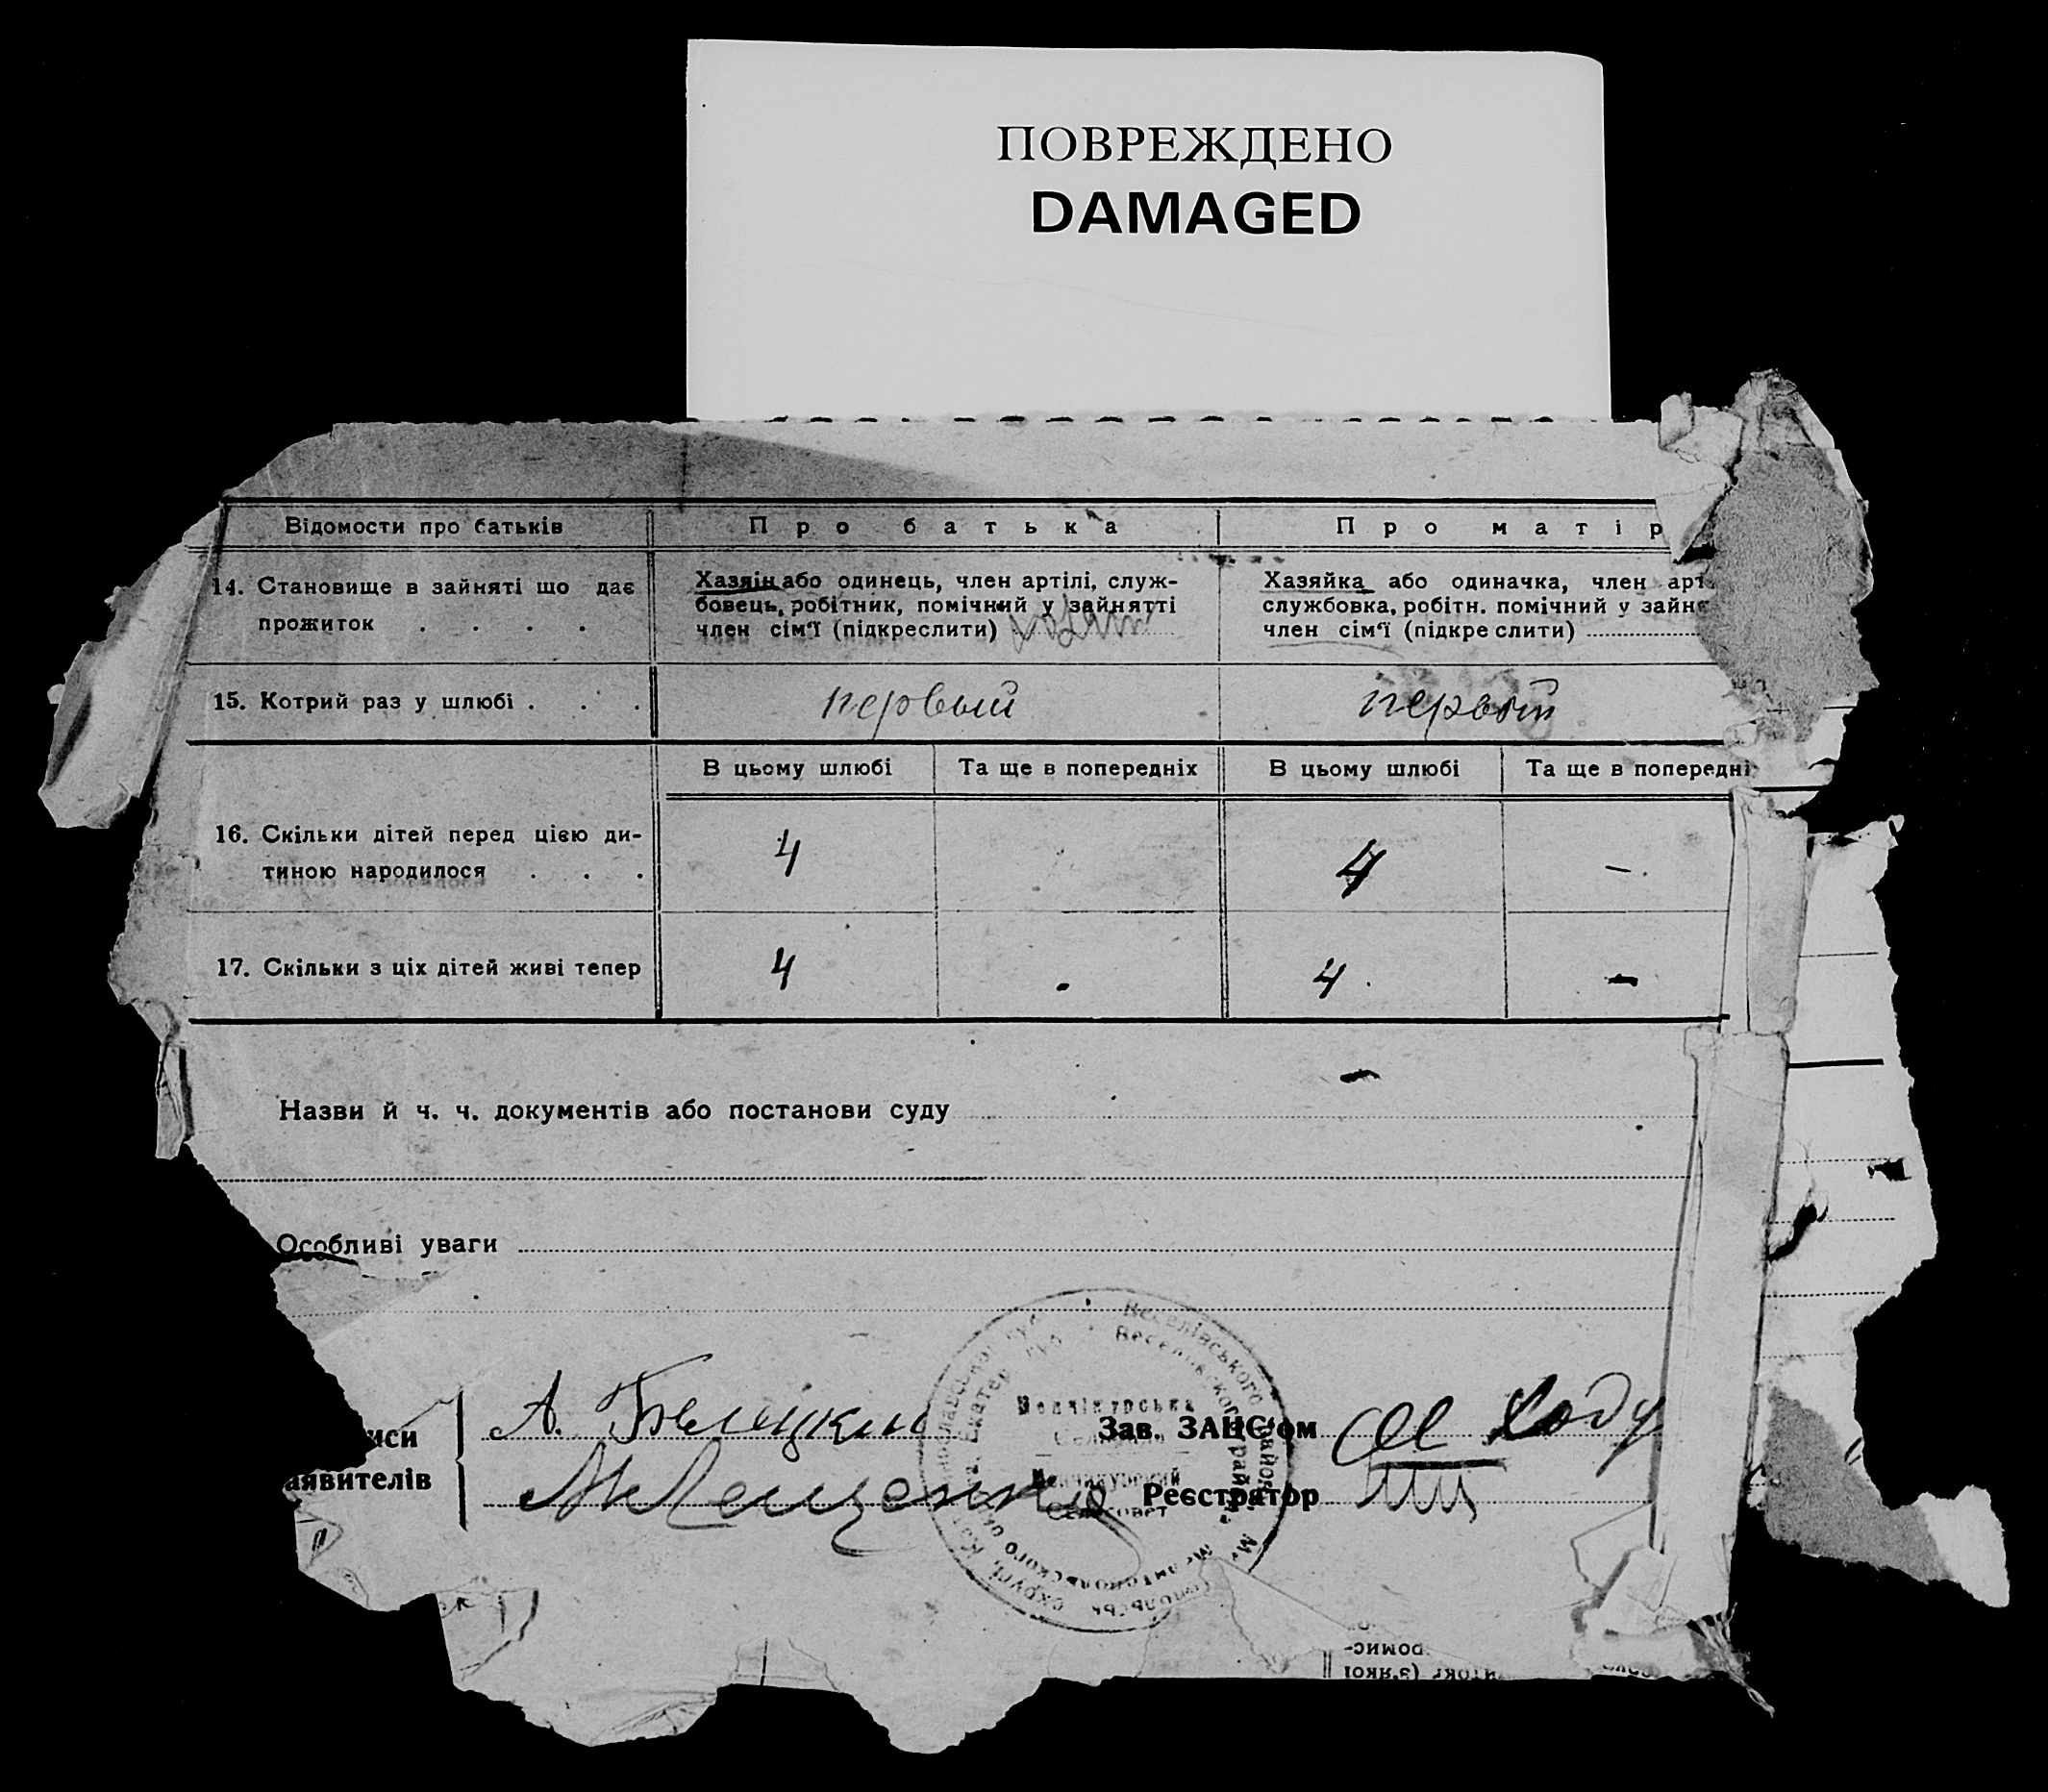 ПОВРЕЖДЕНО
DAMAGED
Відомости про батьків
Про батька
Про матір
14. Становище в зайняті що дає
прожиток . . . .
Хазяін або одинець, член артілі, служ-
бовець, робітник, помічний у зайнятті
член сім‘ї (підкреслити)
Хазяйка або одиначка, член арт
службовка, робітн. помічний у зайня
член сім‘ї (підкреслити)
15. Котрий раз у шлюбі . . .
первый
первый
В цьому шлюбі
Та ще в попередніх
В цьому шлюбі
Та ще в попередні
16. Скільки дітей перед цією ди-
тиною народилося . . .
4
4
-
17. Скільки з ціх дітей живі тепер
4
4
-
Назви й ч. ч. документів або постанови суду
-
Особливі уваги
иси
аявителів
А. Белецкий
М Лещенко
Зав. ЗАПС‘ом
Реєстратор
Веселівського
Мелітопольського
Сельсовет